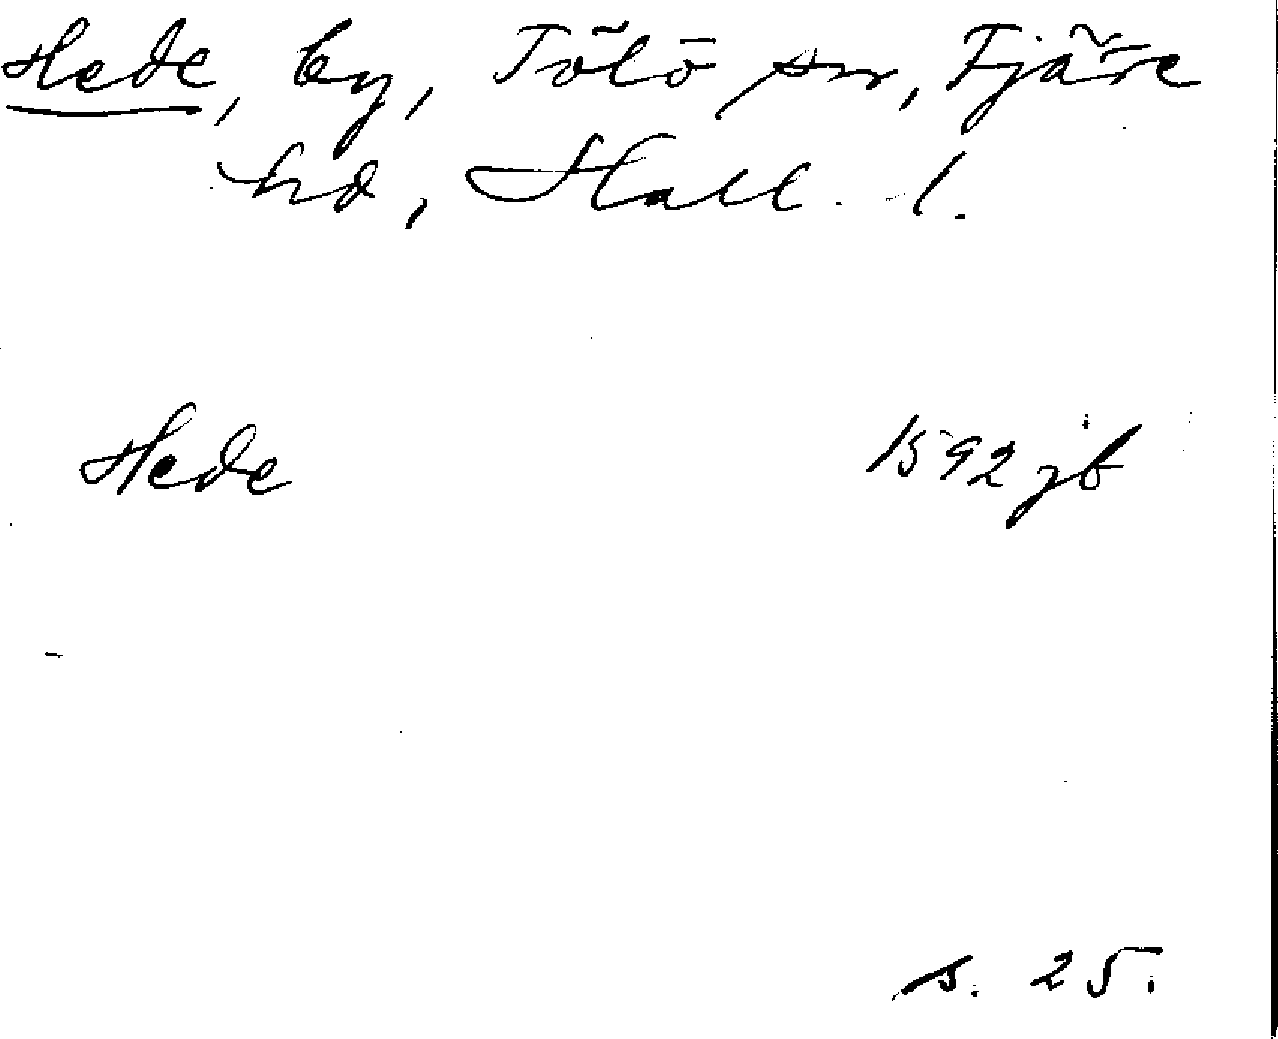 Hede, by, Tölö sn, Fjäre
hd, Hall. l.
Hede 1592 jb
s. 25.